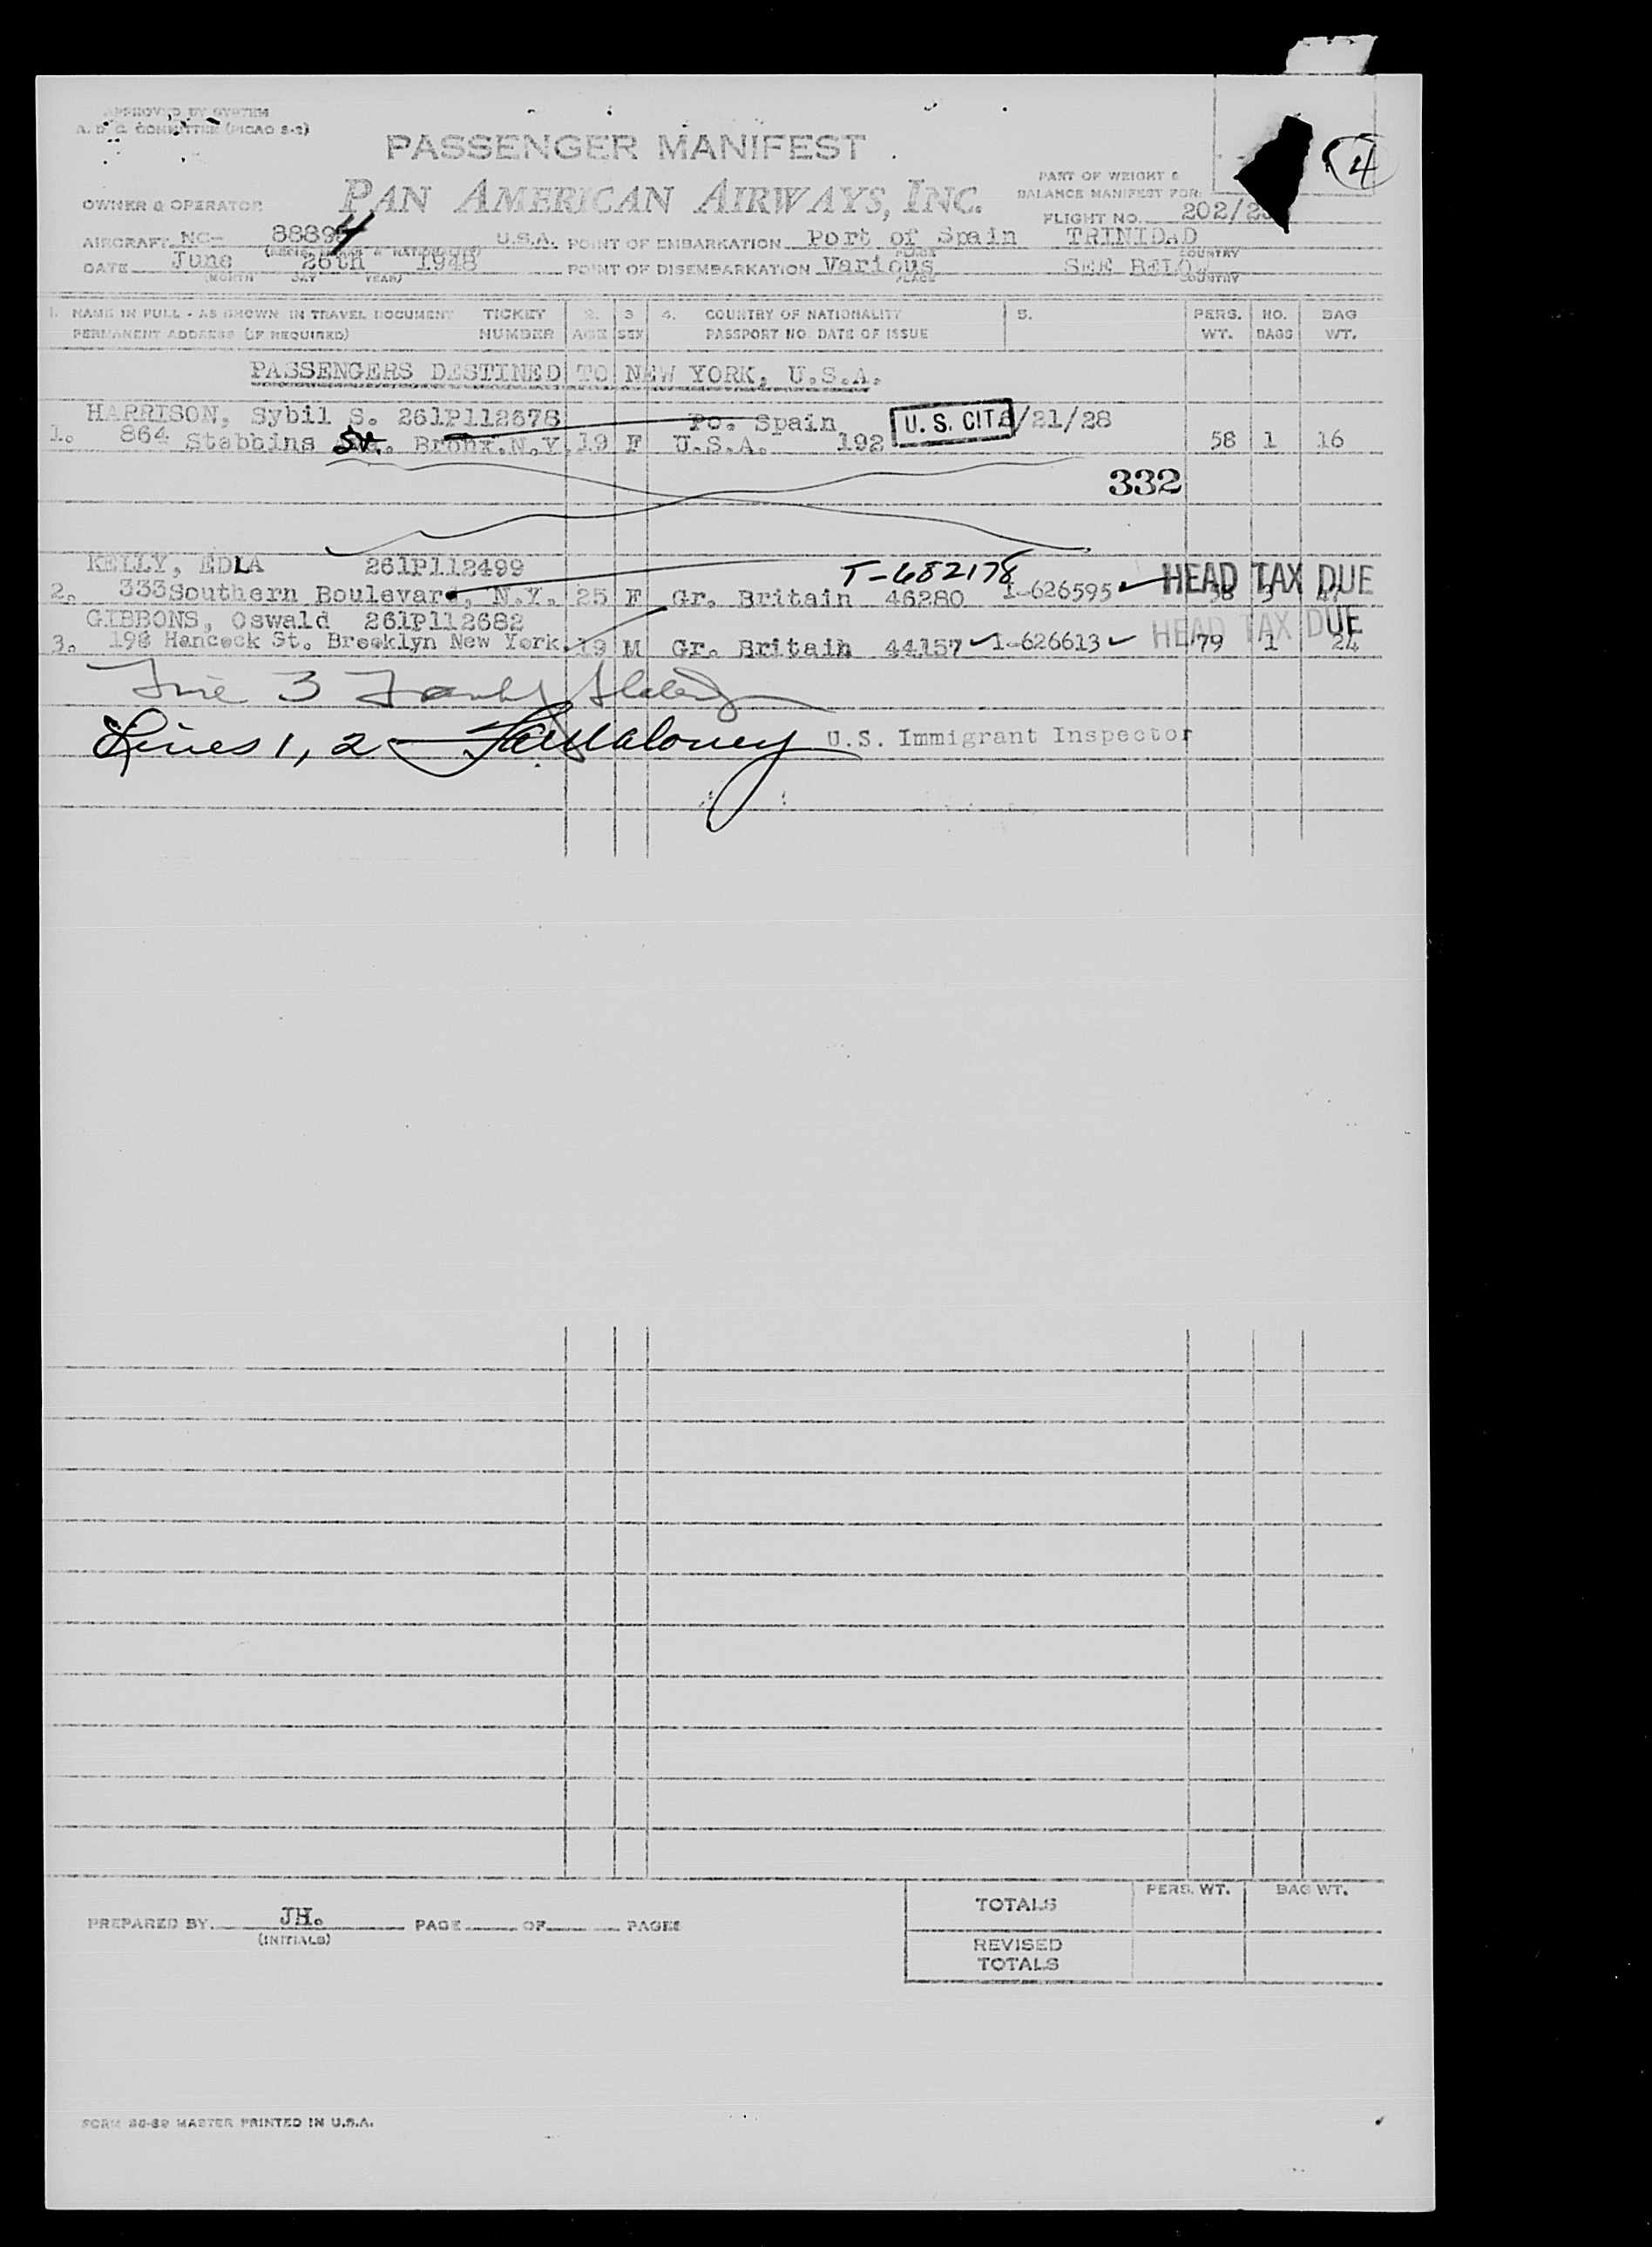 APPROVED BY SYSTEM
A. D. C. COMMITTEE (PICAO S-2)
4
PASSENGER MANIFEST
PAN AMERICAN AIRWAYS, INC.
OWNER & OPERATOR
PART OF WEIGHT &
BALANCE MANIFEST FOR:
FLIGHT NO. 202/
AIRCRAFT NC- 8889 U.S.A. POINT OF EMBARKATION Port of Spain TRINIDAD
PLACE COUNTRY
DATE June 26th 1948 POINT OF DISEMBARKATION Various SEE BELOW
(MONTH DAY YEAR) PLACE COUNTRY
1. NAME IN FULL - AS SHOWN IN TRAVEL DOCUMENT TICKET 2. 3 4. COUNTRY OF NATIONALITY 5. PERS. NO. BAG
PERMANENT ADDRESS (IF REQUIRED) NUMBER AGE SEX PASSPORT NO. DATE OF ISSUE WT. BAGS WT.
PASSENGERS DESTINED TO NEW YORK, U.S.A.
HARRISON, Sybil S. 261P112678 Po. Spain U. S. CIT. /21/28
1. 864 Stebbins Bronx.N.Y. 19 F U.S.A. 192 58 1 16
332
KELLY, EDLA 261P112499 T-682178
2. 333Southern Boulevard, N.Y. 25 F Gr. Britain 46280 I-626595 HEAD TAX DUE 58 3
GIBBONS, Oswald 261P112682
3. 198 Hancock St. Brooklyn New York. 19 M Gr. Britain 44157 I-626613 HEAD TAX DUE 79 1 24
Line 3
Lines 1, 2 Maloney U.S. Immigrant Inspector
PERS. WT. BAG WT.
TOTALS
PREPARED BY. JH. PAGE OF PAGES
(INITIALS)
REVISED
TOTALS
MASTER PRINTED IN U.S.A.